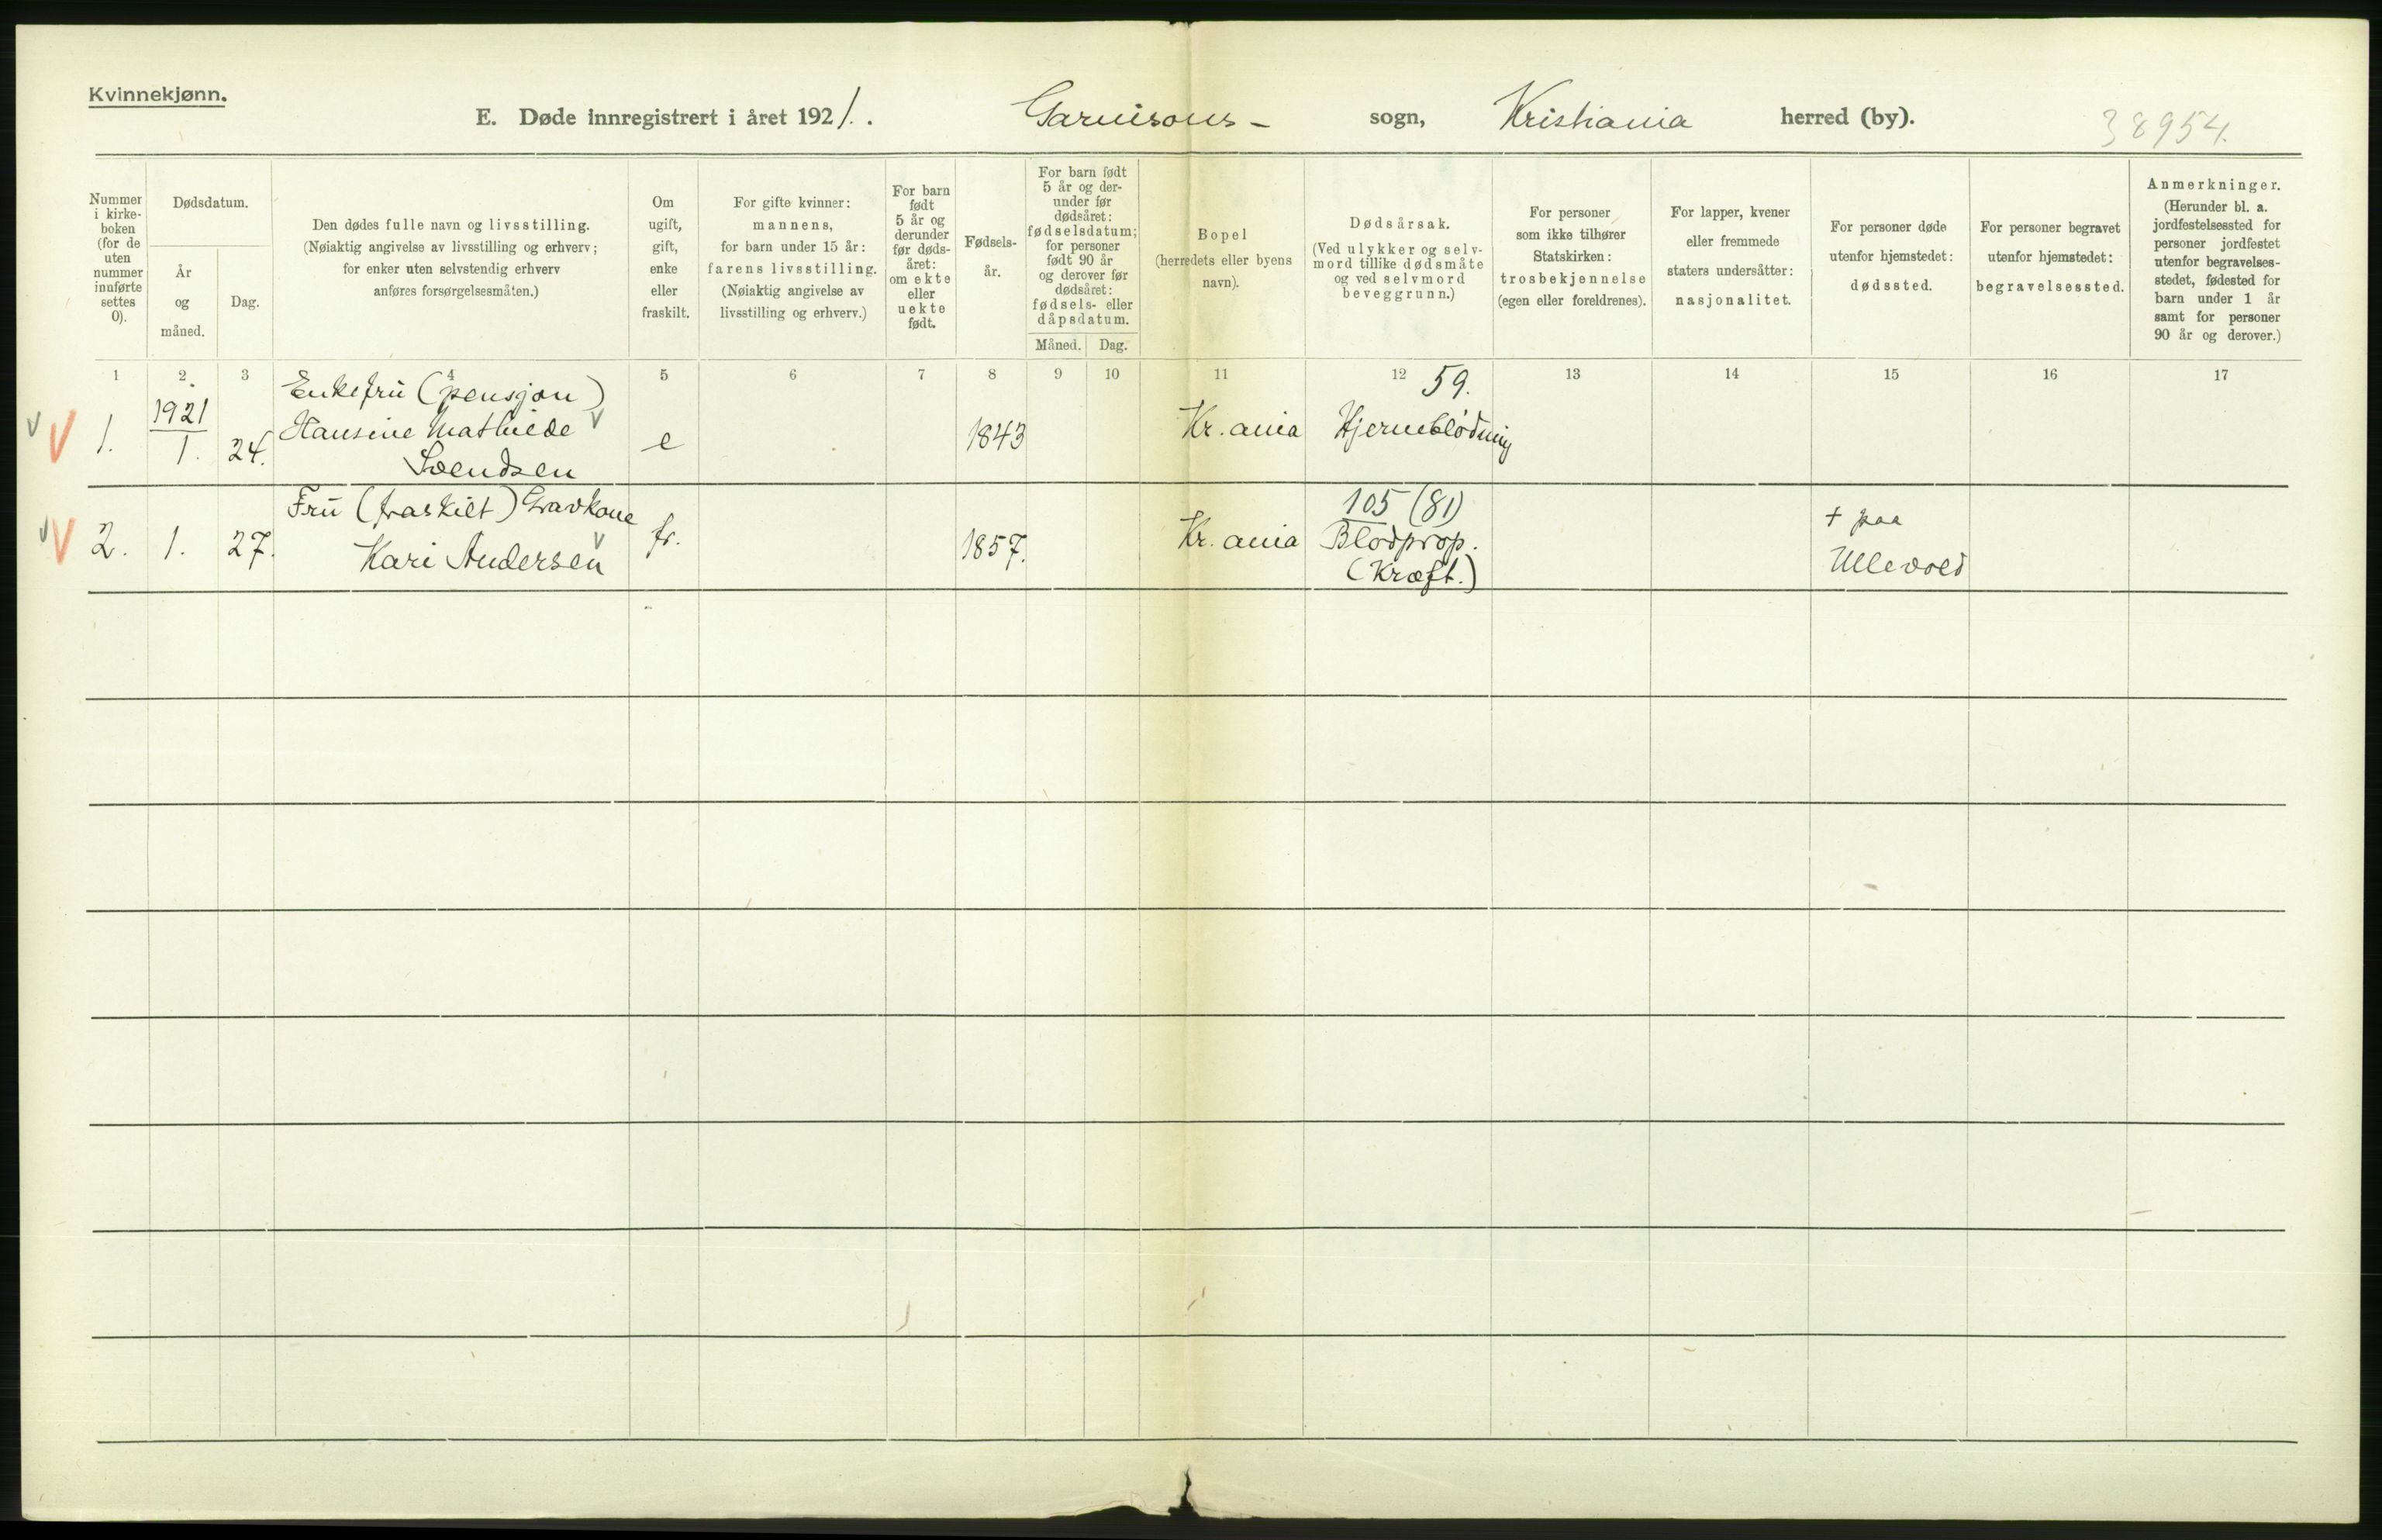 Kvinnekjønn.
E. Døde innregistrert i året 1921. Garnisons- sogn, Kristiania herred (by).
38954.
Nummer
i kirke-
boken
(for de
uten
nummer
innførte
settes
0).
Dødsdatum.
År
og
måned.
Dag.
Den dødes fulle navn og livsstilling.
(Nøiaktig angivelse av livsstilling og erhverv;
for enker uten selvstendig erhverv
anføres forsørgelsesmåten.)
Om
ugift,
gift,
enke
eller
fraskilt.
For gifte kvinner:
mannens,
for barn under 15 år:
farens livsstilling.
(Nøiaktig angivelse av
livsstilling og erhverv.)
For barn
født
5 år og
derunder
før døds-
året:
om ekte
eller
uekte
født.
Fødsels-
år.
For barn født
5 år og der-
under før
dødsåret:
fødselsdatum;
for personer
født 90 år
og derover før
dødsåret:
fødsels- eller
dåpsdatum.
Måned.
Dag.
Bopel
(herredets eller byens
navn).
Dødsårsak.
(Ved ulykker og selv-
mord tillike dødsmåte
og ved selvmord
beveggrunn.)
For personer
som ikke tilhører
Statskirken:
trosbekjennelse
(egen eller foreldrenes).
For lapper, kvener
eller fremmede
staters undersåtter:
nasjonalitet.
For personer døde
utenfor hjemstedet:
dødssted.
For personer begravet
utenfor hjemstedet:
begravelsessted.
Anmerkninger.
(Herunder bl. a.
jordfestelsessted for
personer jordfestet
utenfor begravelses-
stedet, fødested for
barn under 1 år
samt for personer
90 år og derover.)
1 2 3 4 5 6 7 8 9 10 11 12 13 14 15 16 17
V V 1.
1921
1.
24.
Enkefru (pensjon)
Hansine Mathilde V
Svendsen
e
1843
Kr.ania
59.
Hjerneblødning
V V 2.
1.
27.
Fru (fraskilt) Gravkone
Kari Andersen V
fr.
1857.
Kr.ania
105 (81)
Blodprop.
(Kræft.)
+ paa
Ullevold